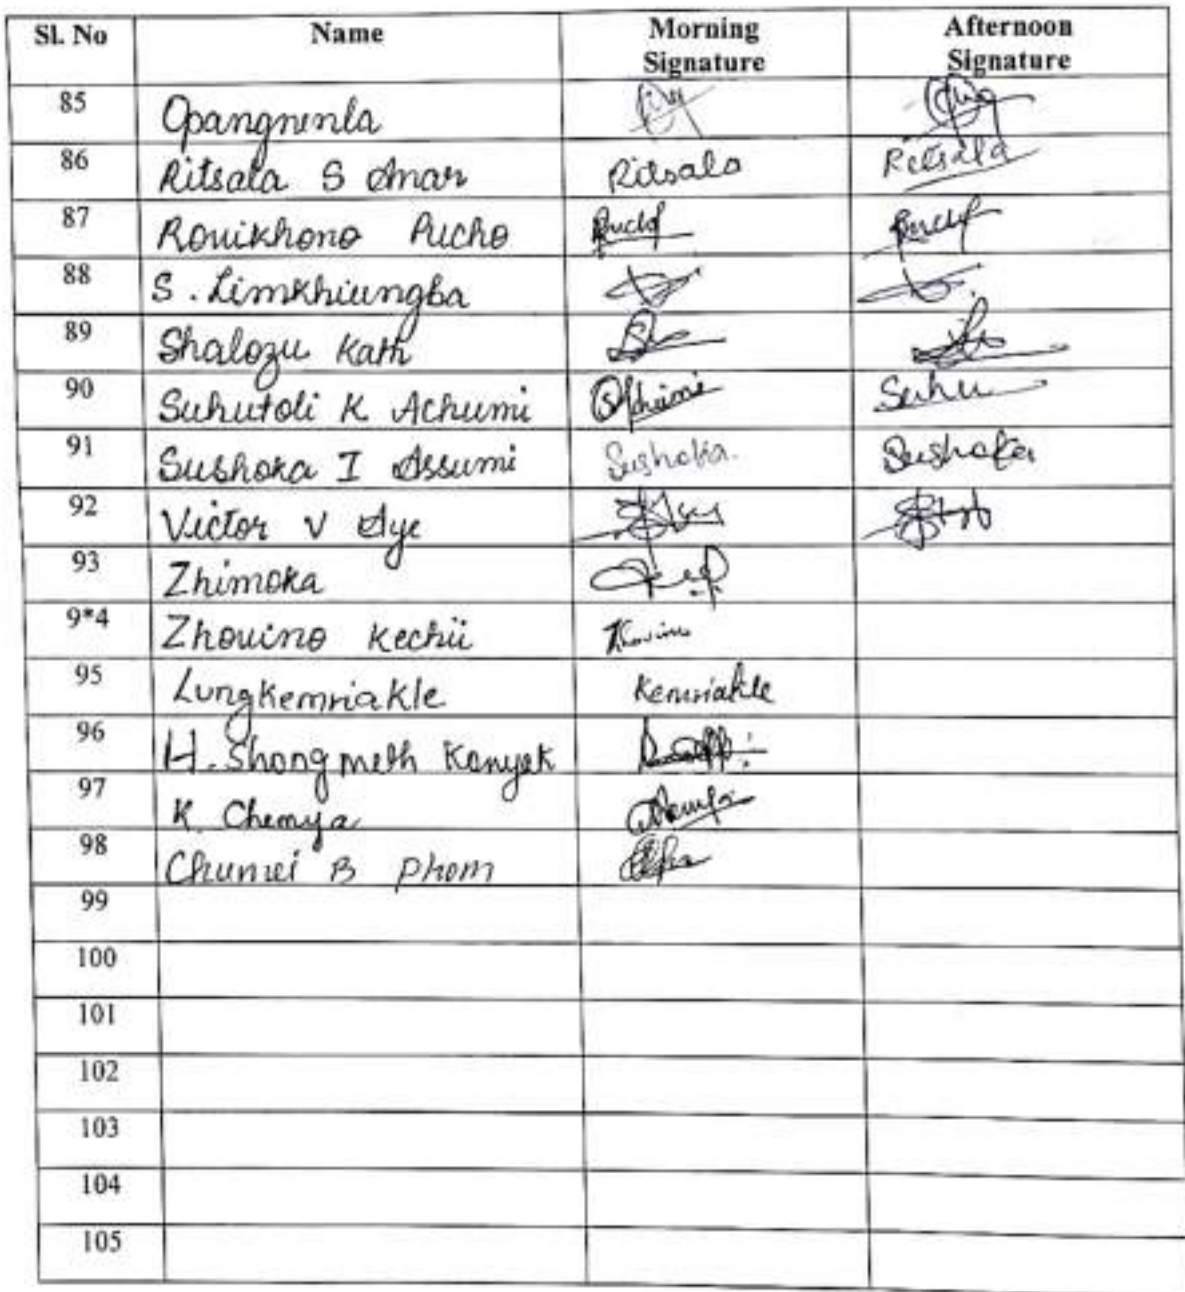 Sl. No Name Morning Signature Afternoon Signature
85 Opangnenla
86 Ritsala S Amar Ritsala Ritsala
87 Rovikhono Pucho
88 S. Limkhiungba
89 Shalozu Kath
90 Suhutoli K Achumi Suhu
91 Sushoka I Assumi Sushoka Sushoka
92 Victor V Aye
93 Zhimoka
9*4 Zhovino Kechü
95 Lungkemriakle Kemriakle
96 H. Shongmeth Konyak
97 K. Chemya
98 Chumei B Phom
99
100
101
102
103
104
105